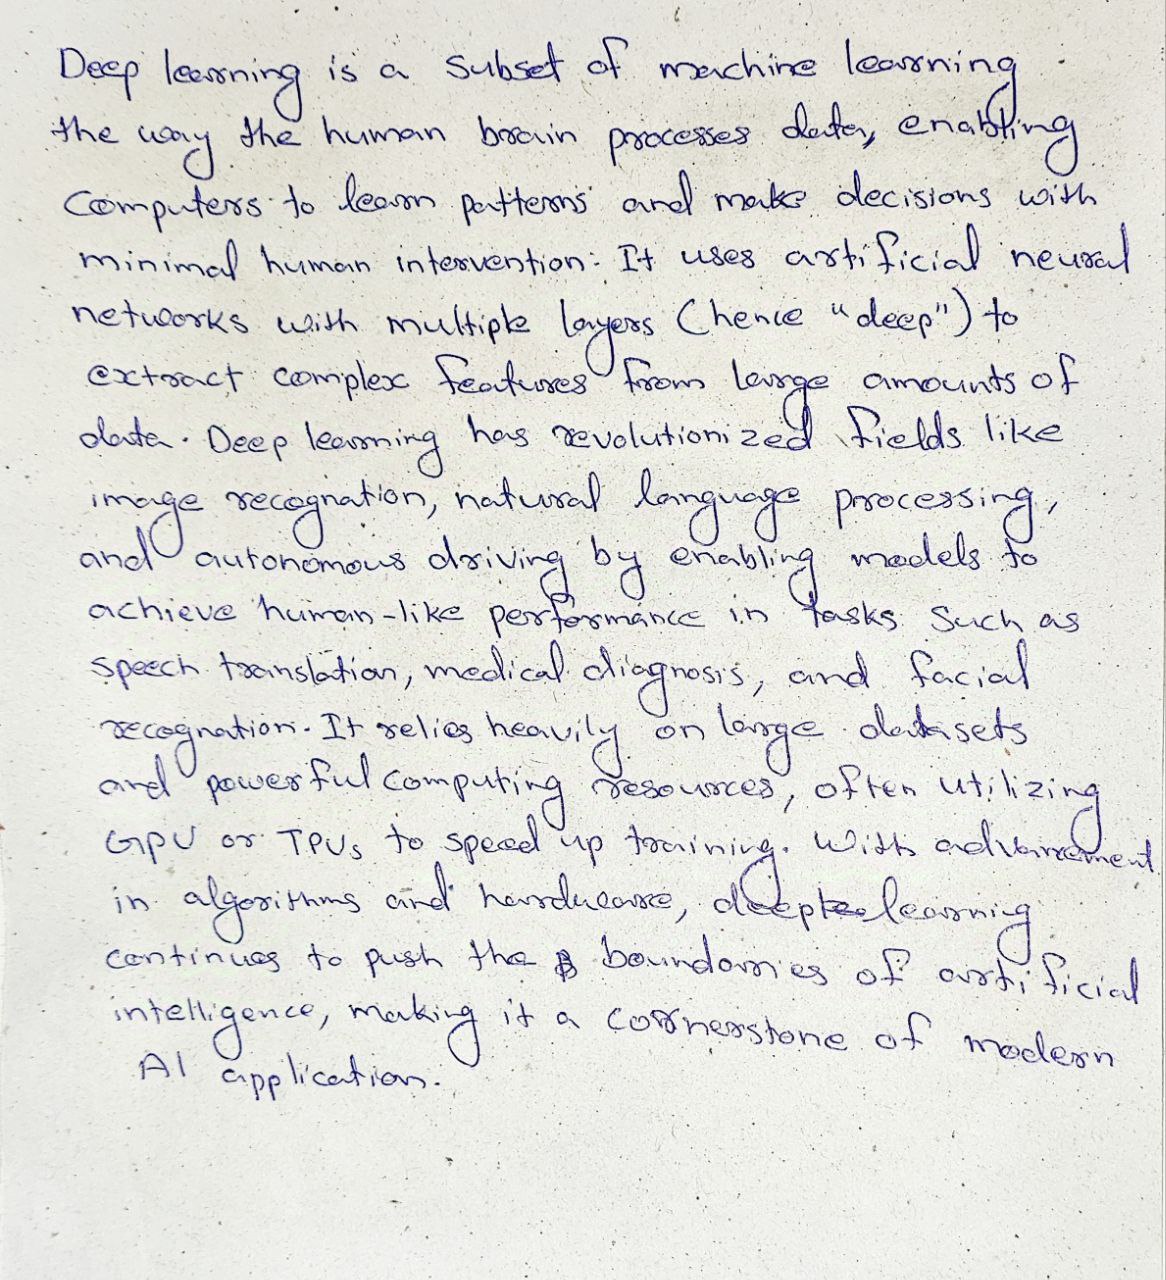 Deep learning is a subset of machine learning
the way the human brain processes data, enabling
Computers to learn patterns and make decisions with
minimal human intervention. It uses artificial neural
networks with multiple layers (hence "deep") to
extract complex features from large amounts of
data. Deep learning has revolutionized fields like
image recognation, natural language processing,
and autonomous driving by enabling models to
achieve human-like performance in tasks such as
speech translation, medical diagnosis, and facial
recognation. It relies heavily on large datasets
and powerful computing resources, often utilizing
GPU or TPUs to speed up training. With advancement
in algorithms and hardware, deep learning
continues to push the boundaries of artificial
intelligence, making it a cornerstone of modern
AI application.